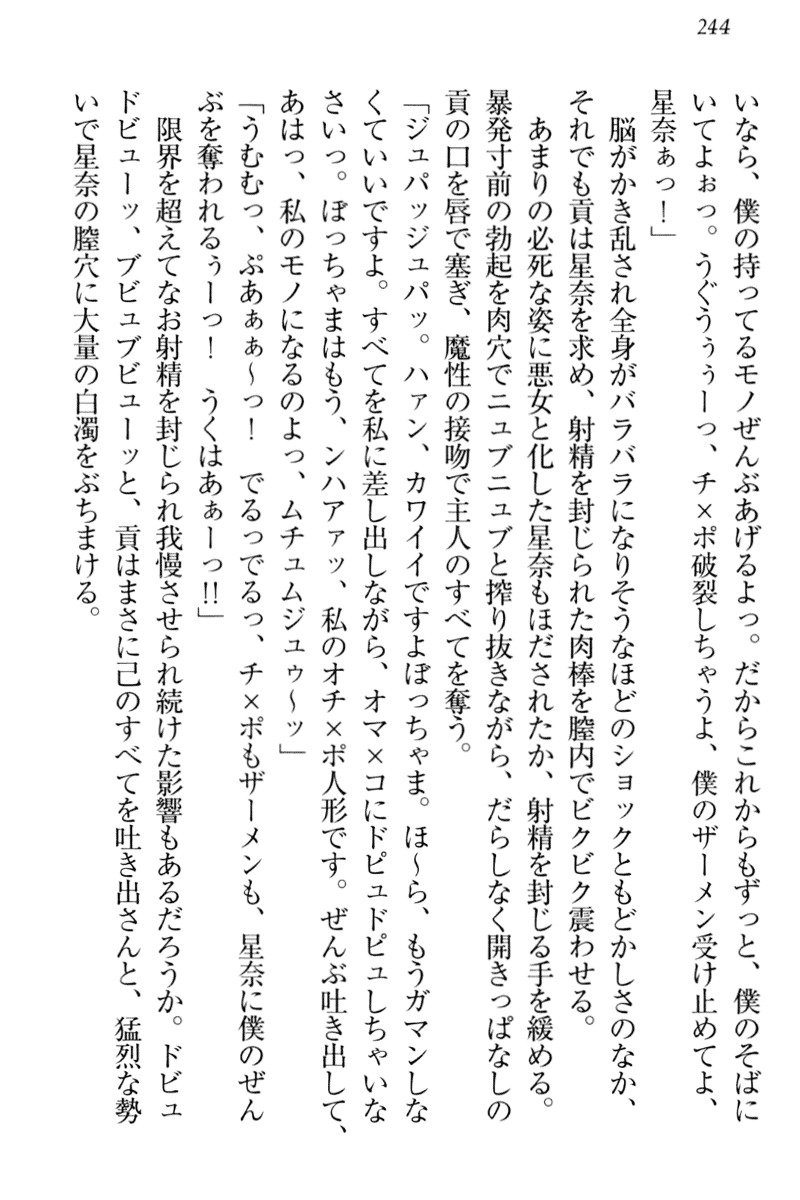 244
いなら、僕の持ってるモノぜんぶあげるよっ。だからこれからもずっと、僕のそばに
いてよぉっ。うぐうぅぅーっ、チ×ポ破裂しちゃうよ、僕のザーメン受け止めてよ、
星奈ぁっ！」
　脳がかき乱され全身がバラバラになりそうなほどのショックともどかしさのなか、
それでも貢は星奈を求め、射精を封じられた肉棒を膣内でビクビク震わせる。
　あまりの必死な姿に悪女と化した星奈もほだされたか、射精を封じる手を緩める。
暴発寸前の勃起を肉穴でニュブニュブと搾り抜きながら、だらしなく開きっぱなしの
貢の口を唇で塞ぎ、魔性の接吻で主人のすべてを奪う。
「ジュパッジュパッ。ハァン、カワイイですよぼっちゃま。ほ～ら、もうガマンしな
くていいですよ。すべてを私に差し出しながら、オマ×コにドピュドピュしちゃいな
さいっ。ぼっちゃまはもう、ンハアァッ、私のオチ×ポ人形です。ぜんぶ吐き出して、
あはっ、私のモノになるのよっ、ムチュムジュゥ～ッ」
「うむむっ、ぷあぁぁ～っ！　でるっでるっ、チ×ポもザーメンも、星奈に僕のぜん
ぶを奪われるぅーっ！　うくはあぁーっ!!」
　限界を超えてなお射精を封じられ我慢させられ続けた影響もあるだろうか。ドビュ
ドビューッ、ブビュブビューッと、貢はまさに己のすべてを吐き出さんと、猛烈な勢
いで星奈の膣穴に大量の白濁をぶちまける。